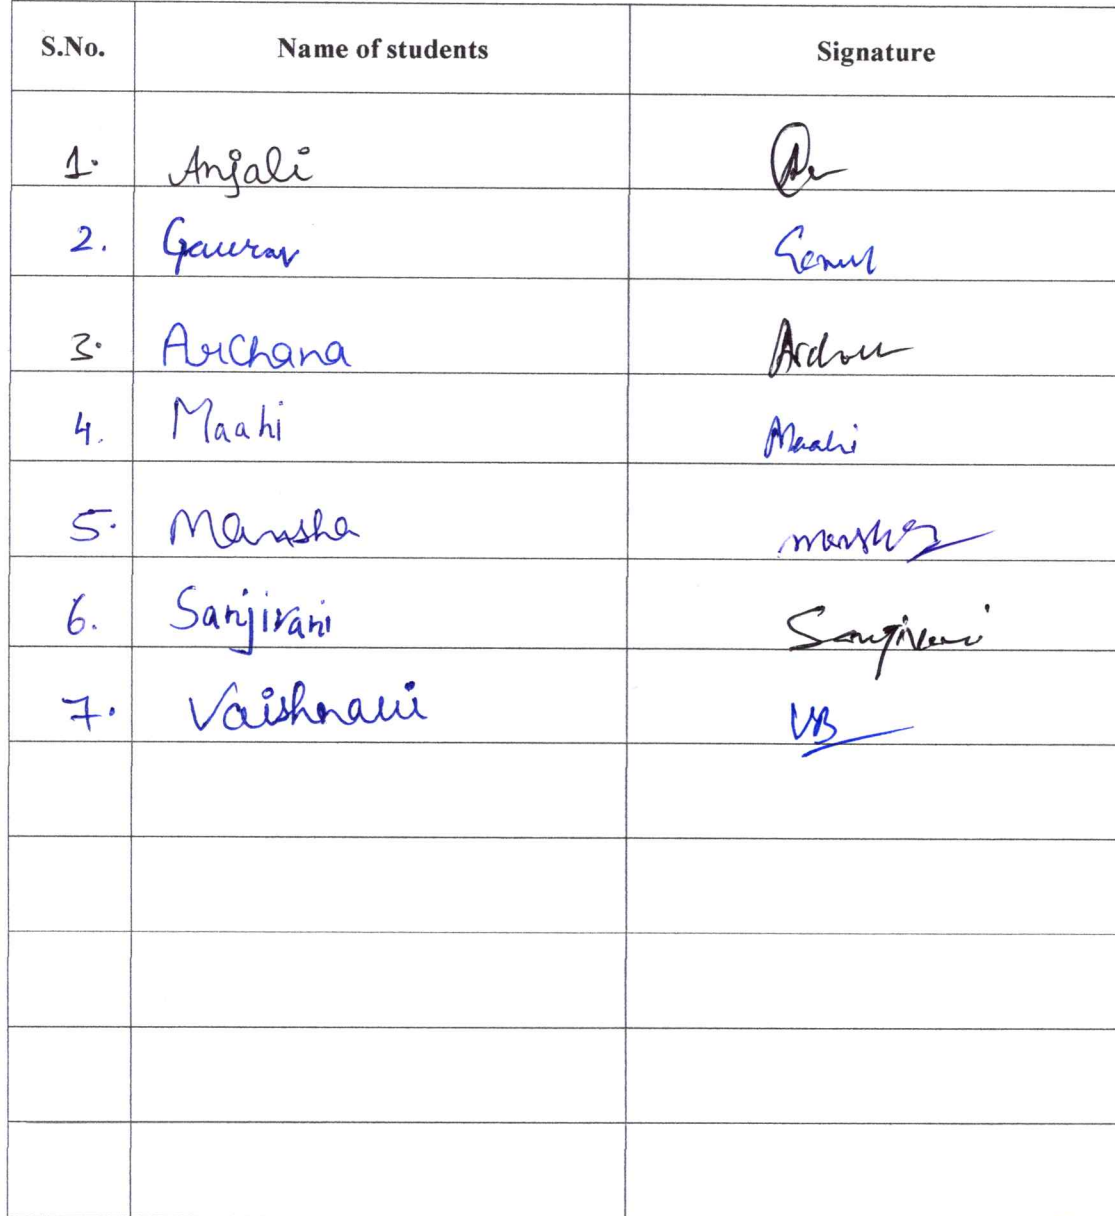 S.No. Name of students Signature
1. Anjali
2. Gaurav
3. Archana
4. Maahi Maahi
5. Mansha
6. Sanjivani Sanjivani
7. Vaishnavi VB